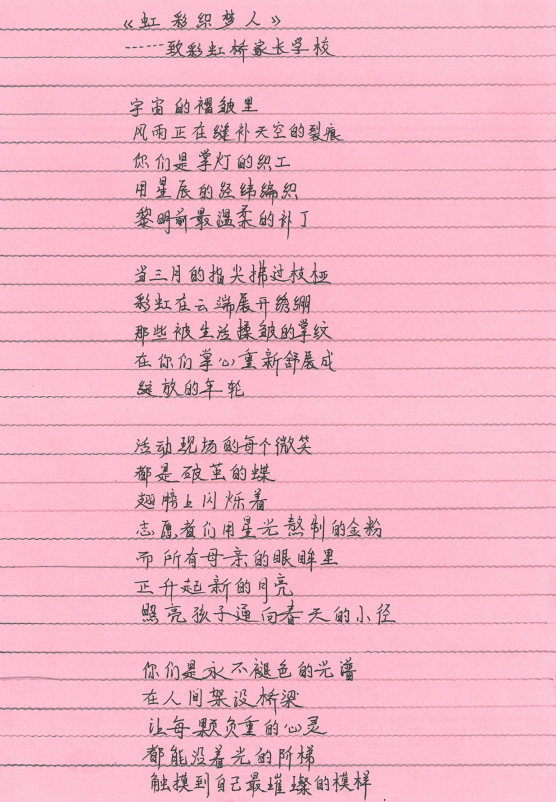 《虹彩织梦人》
------致彩虹桥家长学校
宇宙的褶皱里
风雨正在缝补天空的裂痕
你们是掌灯的织工
用星辰的经纬编织
黎明前最温柔的补丁
当三月的指尖拂过枝桠
彩虹在云端展开绣绷
那些被生活揉皱的掌纹
在你们掌心重新舒展成
绽放的年轮
活动现场的每个微笑
都是破茧的蝶
翅膀上闪烁着
志愿者们用星光熬制的金粉
而所有母亲的眼眸里
正升起新的月亮
照亮孩子通向春天的小径
你们是永不褪色的光谱
在人间架设桥梁
让每颗负重的心灵
都能沿着光的阶梯
触摸到自己最璀璨的模样